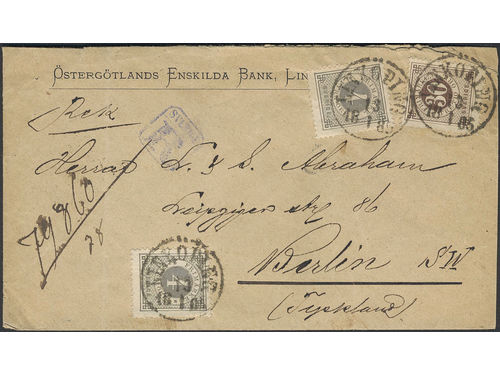 ÖSTERGÖTLANDS ENSKILDA BANK, LIN
Rek
Herrar L. & S. Abraham
Leipziger str 86
Berlin SW
(Tyskland)
79860
78
30
4
4
LINKÖPING
13
1